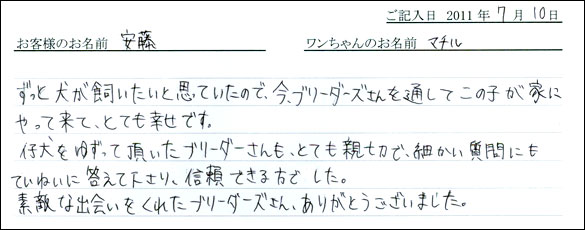 ご記入日 2011年7月10日
お客様のお名前 安藤 ワンちゃんのお名前 マチル
ずっと犬が飼いたいと思っていたので、今、ブリーダーズさんを通してこの子が家に
やって来て、とても幸せです。
仔犬をゆずって頂いたブリーダーさんも、とても親切で、細かい質問にも
ていねいに答えて下さり、信頼できる方でした。
素敵な出会いをくれたブリーダーズさん、ありがとうございました。